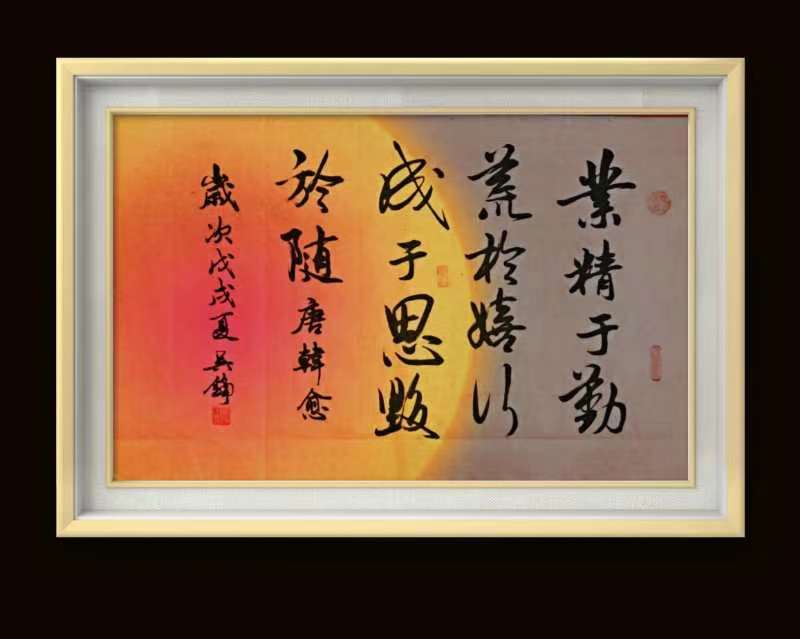 業精于勤
荒於嬉行
成于思毁
於随唐韓愈
歲次戊戌夏吴錦